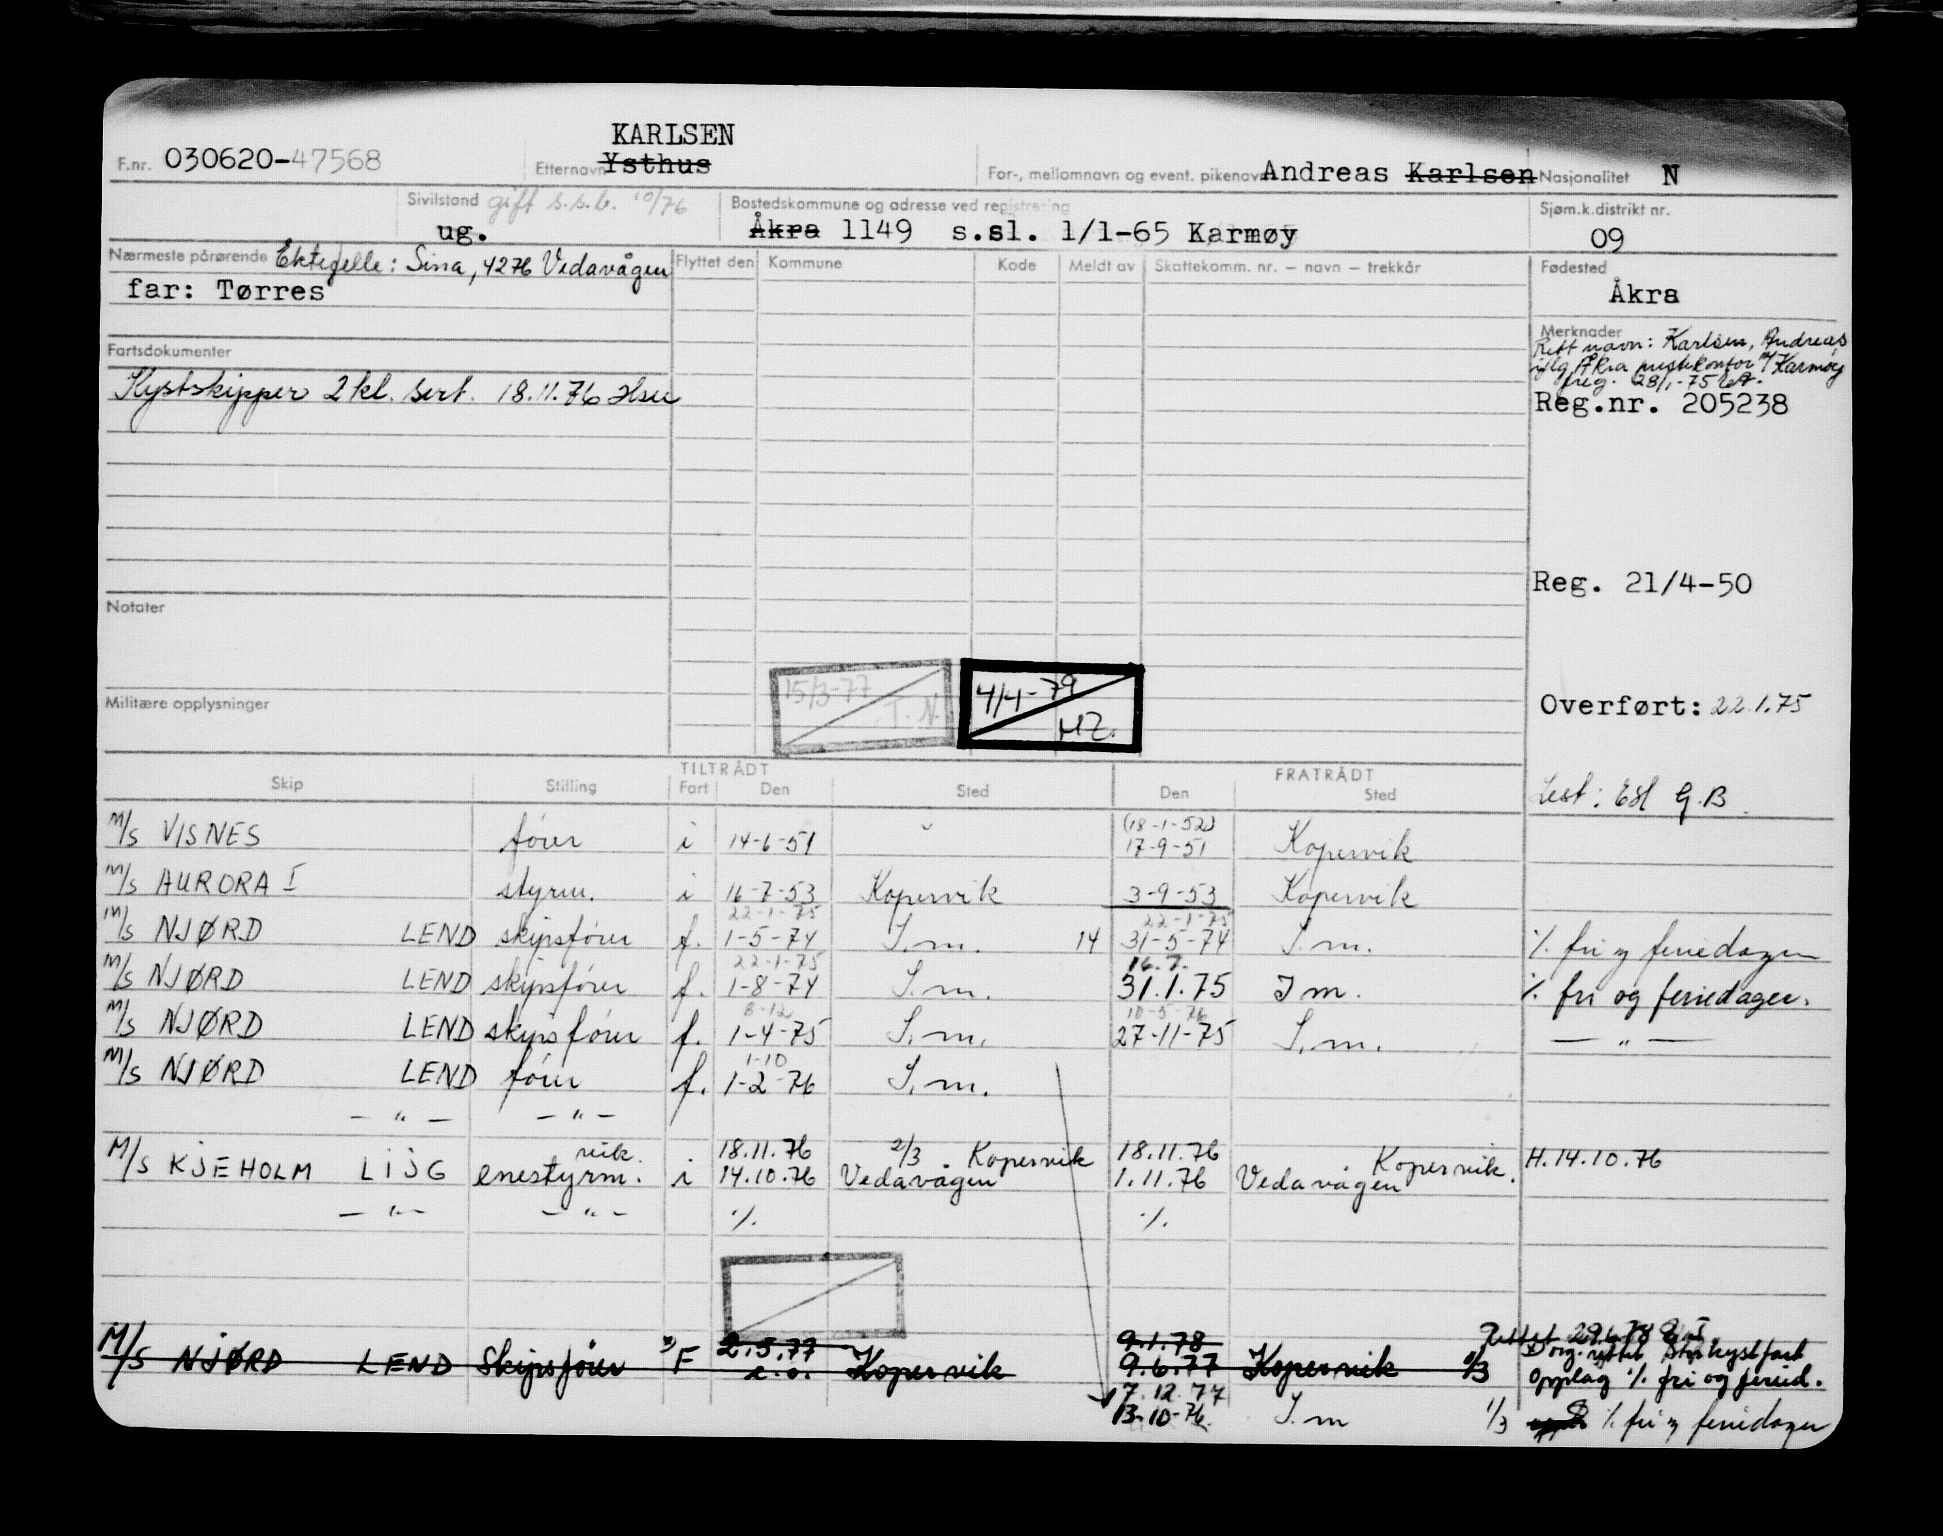 KARLSEN
F.nr. 030620-47568 Etternavn Ysthus For-, mellomnavn og event. pikenavn Andreas Karlsen Nasjonalitet N
Sivilstand gift s.s.b. 10/76 Bostedskommune og adresse ved registrering Sjøm.k.distrikt nr.
ug. Åkra 1149 s.sl. 1/1-65 Karmøy 09
Nærmeste pårørende Ektefelle: Sina, 4276 Vedavågen Flyttet den Kommune Kode Meldt av Skattekomm. nr. – navn – trekkår Fødested
far: Tørres Åkra
Merknader
Rett navn: Karlsen, Andreas
Åkra Karmøy
Fartsdokumenter 28/1-75
Kystskipper 2 kl. sert. 18.11.76 Reg.nr. 205238
Reg. 21/4-50
Notater
15/3-77 4/4-79
T.N. MZ.
Militære opplysninger Overført: 22.1.75
TILTRÅDT FRATRÅDT
Skip Stilling Fart Den Sted Den Sted Lest: G.B.
(18-1-52)
M/S VISNES fører i 14-6-51 17-9-51 Kopervik
M/S AURORA I styrm. i 16-7-53 Kopervik 3-9-53 Kopervik
22-1-75 22-1-75
M/S NJØRD LEND skipsfører f. 1-5-74 S.m. 14 31-5-74 S.m. ./. fri og feriedager
22-1-75 16.7.
M/S NJØRD LEND skipsfører f. 1-8-74 S.m. 31.1.75 S m. ./. fri og feriedager.
8-12 10-5-76
M/S NJØRD LEND skipsfører f. 1-4-75 S.m. 27-11-75 S.m. — " —
1-10
M/S NJØRD LEND fører f. 1-2-76 S.m.
— " — — " —
vik. 18.11.76 2/3 Kopervik 18.11.76 Kopervik.
M/S KJEHOLM LIJG enestyrm. i 14.10.76 Vedavågen 1.11.76 Vedavågen H.14.10.76
— " — — " — ./. ./.
Rettet 29.6.78
2.5.77 9.1.78 kystfart
M/S NJØRD LEND Skipsfører F a.o. Kopervik 9.6.77 Kopervik 0/3 opplag ./. fri og feried.
7.12.77
13-10-76 S.m 1/3 ./. fri og feriedager